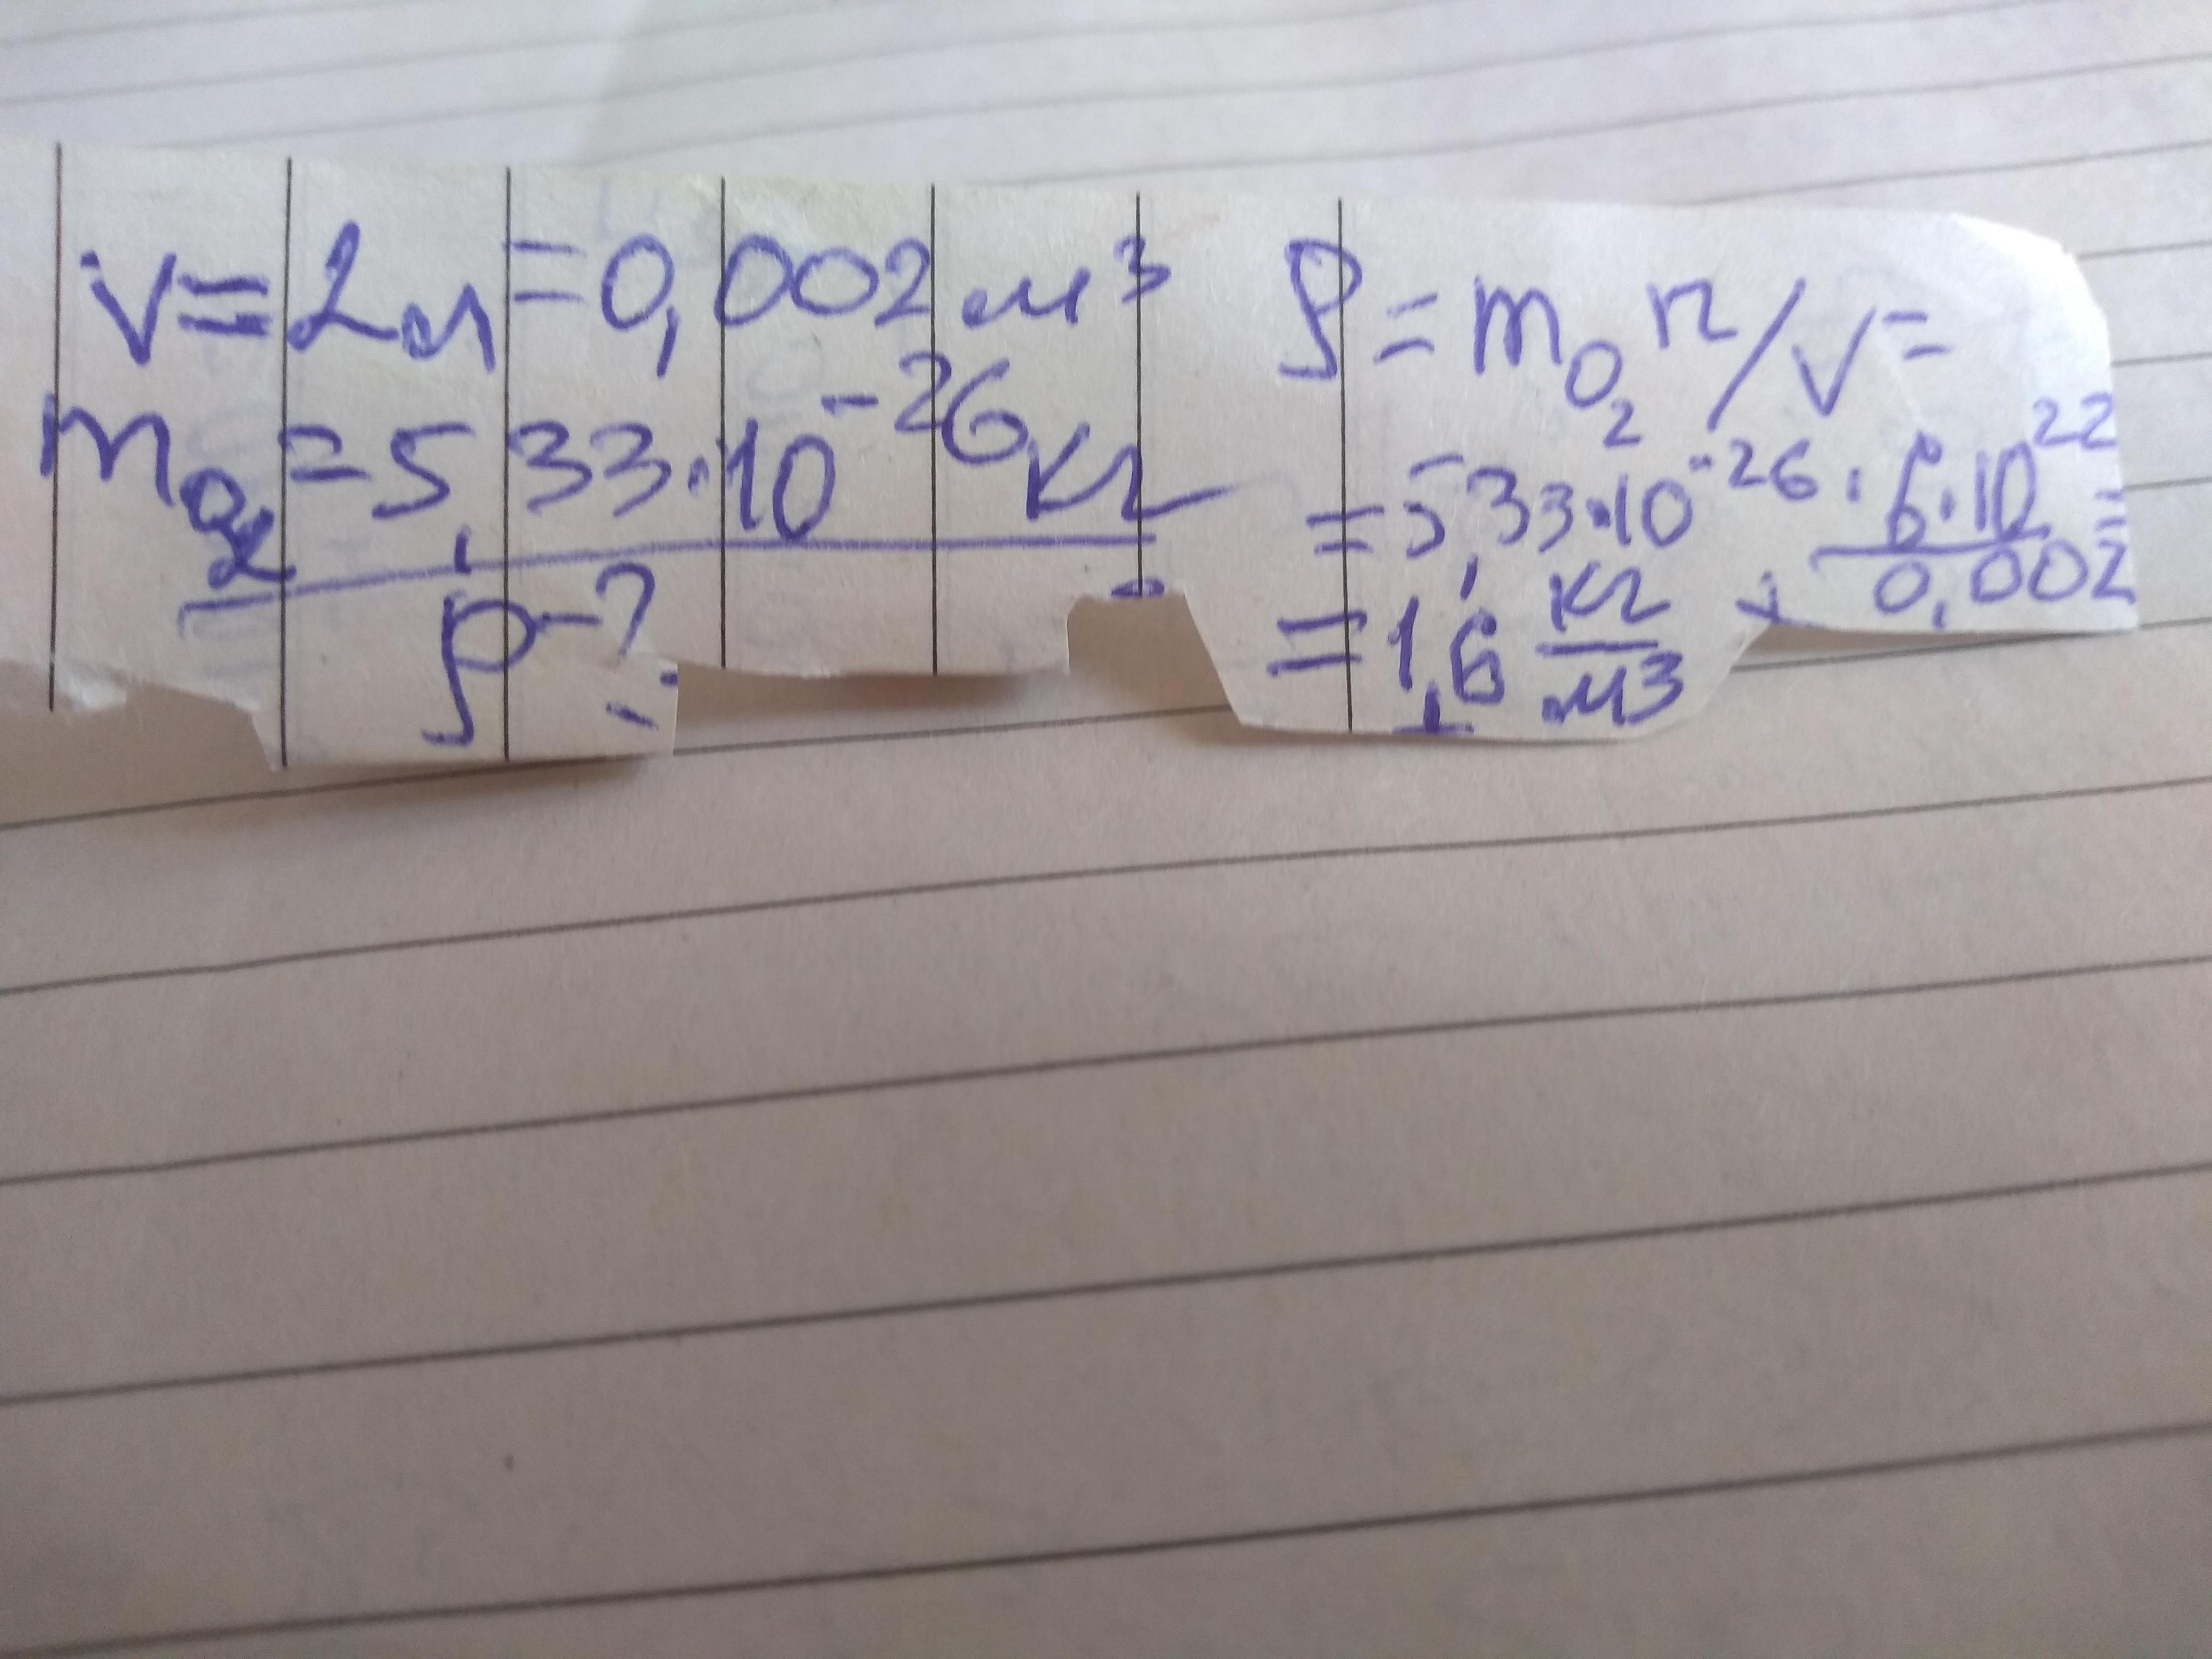 V=2л=0,002м³
m₀₂=5,33·10⁻²⁶кг
ρ-?
ρ=m₀₂n/V=
=5,33·10⁻²⁶·6·10²²/0,002=
=1,6 кг/м3